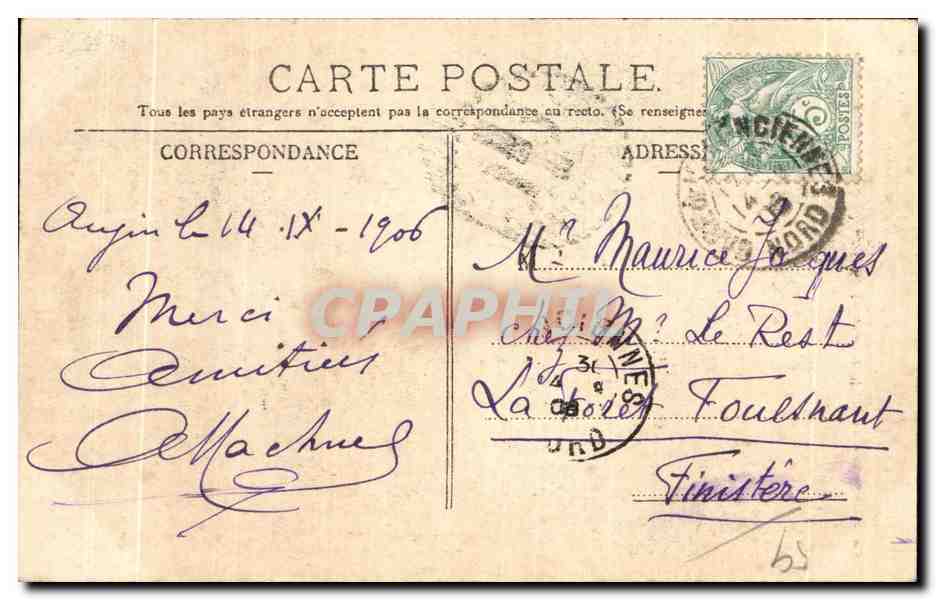 CARTE POSTALE.
Tous les pays étrangers n'acceptent pas la correspondance au recto. (Se renseigne
CORRESPONDANCE
ADRESS
POSTES
NCIENNES
NORD
Anzin le 14. IX - 1906
Merci
Amitiés
AMachuel
Mr. Maurice Jacques
chez Mr. Le Rest
La Foret Fouesnant
Finistère
NNES
CPRAPHIL